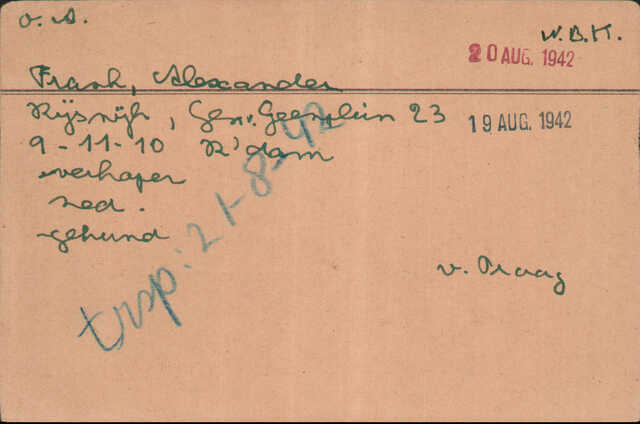 v. A.
W.B.K.
20 AUG. 1942
Frank, Alexander
Rijswijk, Gen. v. Geenplein 23
19 AUG. 1942
9-11-10 R'dam
verkoper
ned.
gehuwd
trsp: 21-8-42
v. Praag